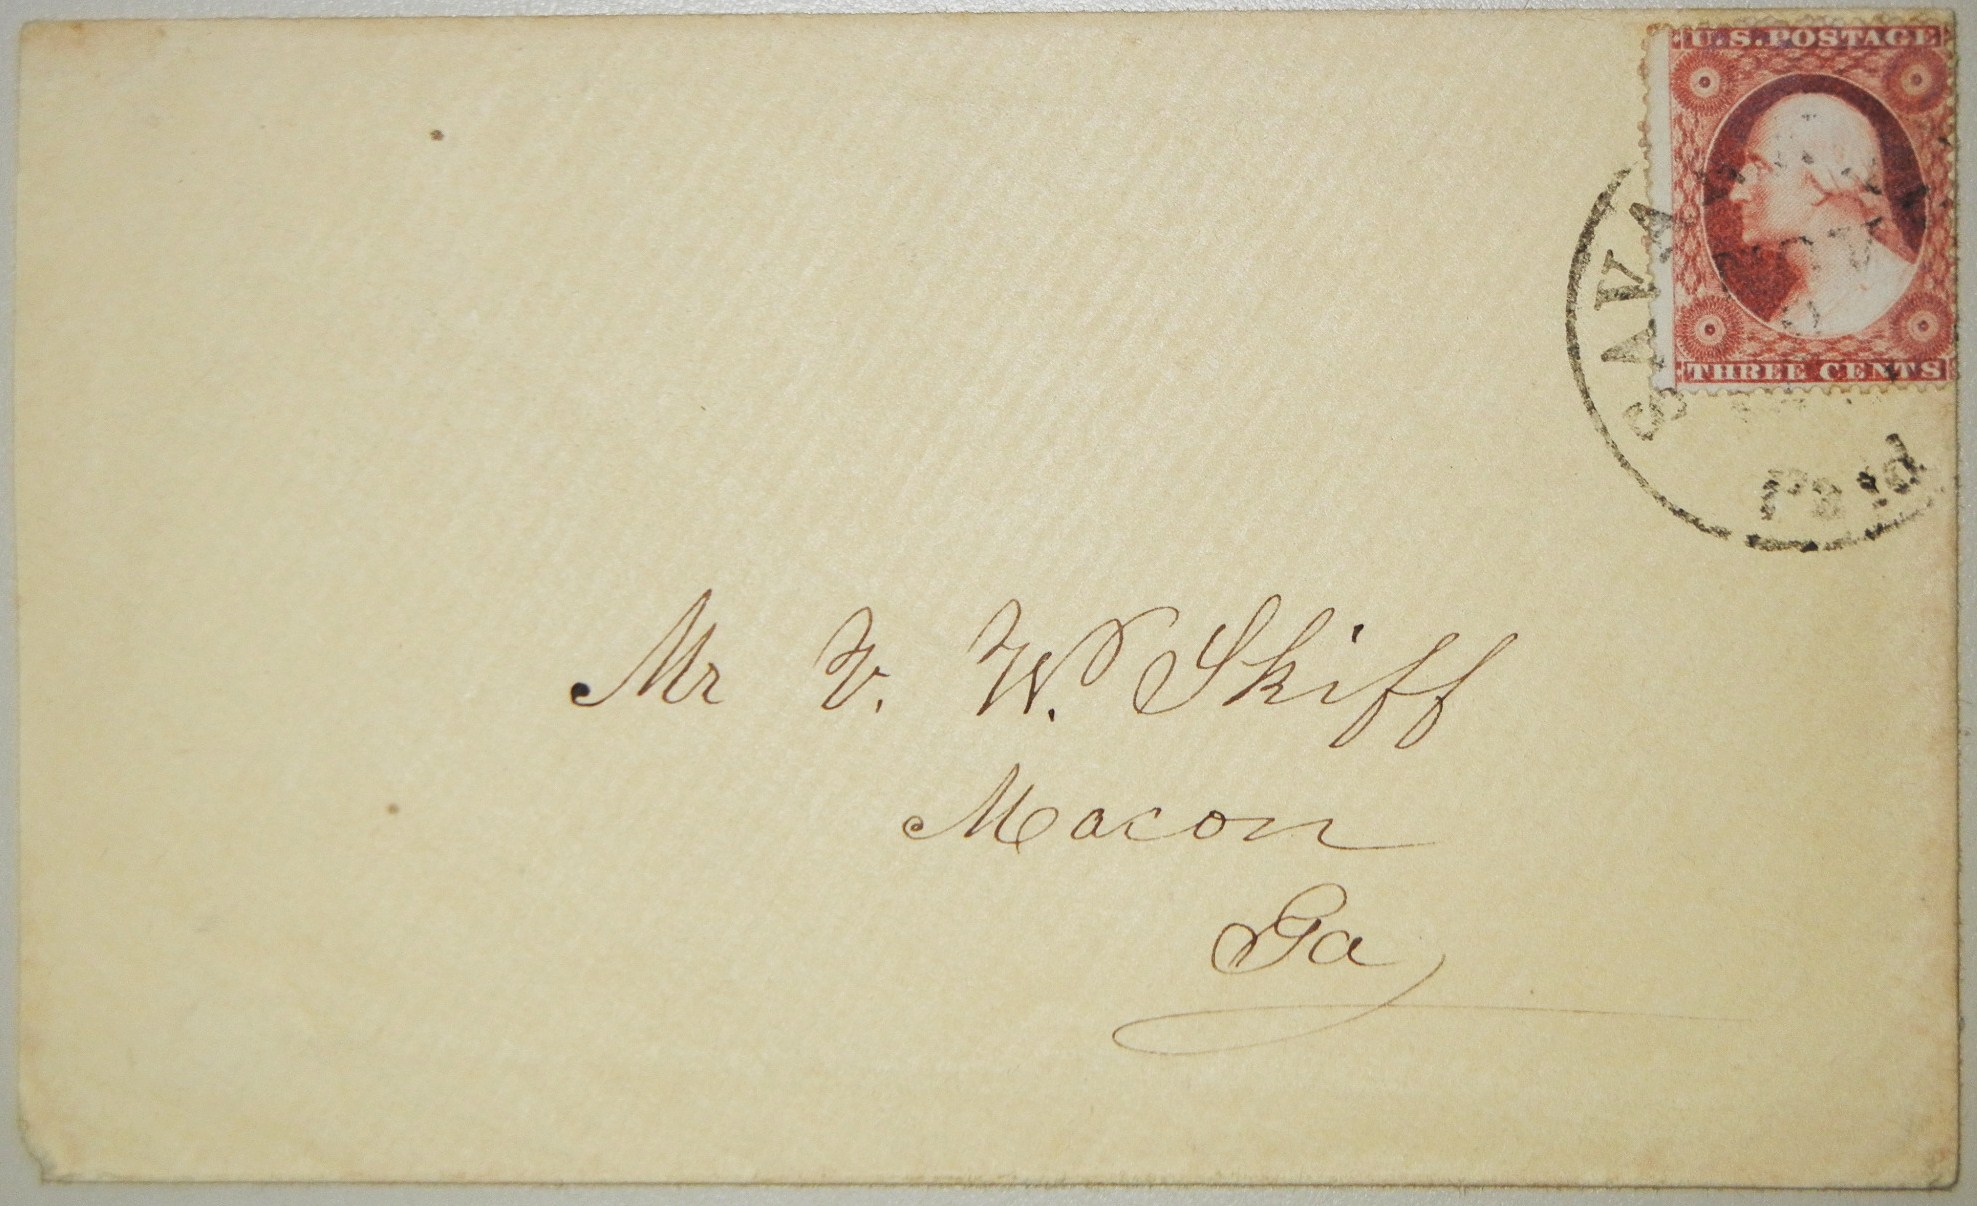 U.S. POSTAGE
THREE CENTS
SAVA
Paid
Mr V. W. Skiff
Macon
Ga